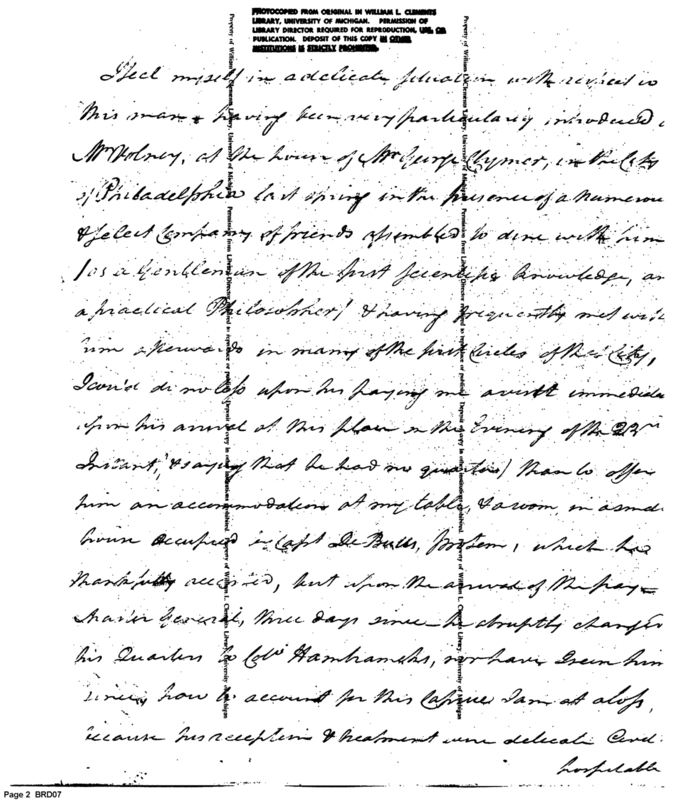 PHOTOCOPIED FROM ORIGINAL IN WILLIAM L. CLEMENTS
LIBRARY, UNIVERSITY OF MICHIGAN. PERMISSION OF
LIBRARY DIRECTOR REQUIRED FOR REPRODUCTION, USE, OR
PUBLICATION. DEPOSIT OF THIS COPY IN OTHER
INSTITUTIONS IS STRICTLY PROHIBITED.
I feel myself in a delicate situation with respect to
this man & having been very particularly introduced
Mr Volney, at the house of Mr George Clymer, in the City
of Philadelphia last spring in the presence of a numerous
& select Company of friends assembled to dine with him
(as a Gentleman of the first Scientific Knowledge, an
a practical Philosopher) & having frequently met with
him afterwards in many of the first Circles of the City,
I cou'd do no less upon his paying me a visit immediate
upon his arrival at this place on the Evening of the 23rd
Instant, (& saying that he had no quarters) than to offer
him an accommodation at my table, & a room in a small
house occupied Capt De Butts, protem, which he
thankfully received, but upon the arrival of the pay-
master General, three days since he abruptly changed
his Quarters to Colo Hamtramcks, nor have I seen him
since, how to account for this Caprice I am at a loss,
because his reception & treatment were delicate Civil
hospitable
Page 2 BRD07